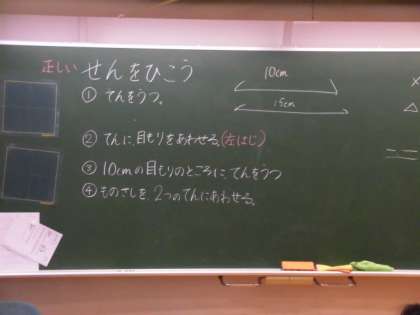 正しい せんをひこう
① てんをうつ。
② てんに、目もりをあわせる。(左はじ)
③ 10cmの目もりのところに、てんをうつ
④ ものさしを、2つのてんにあわせる。
10cm
15cm